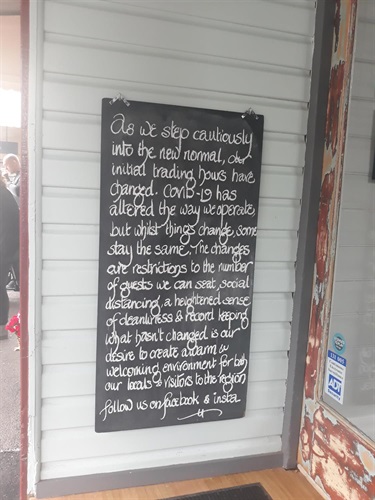 As we step cautiously
into the new normal, our
initial trading hours have
changed. COVID-19 has
altered the way we operate,
but whilst things change, some
stay the same. The changes
are restrictions to the number
of guests we can seat, social
distancing, a heightened sense
of cleanliness & record keeping
what hasn't changed is our
desire to create a warm &
welcoming environment for both
our locals & visitors to the region
follow us on facebook & insta
ADT